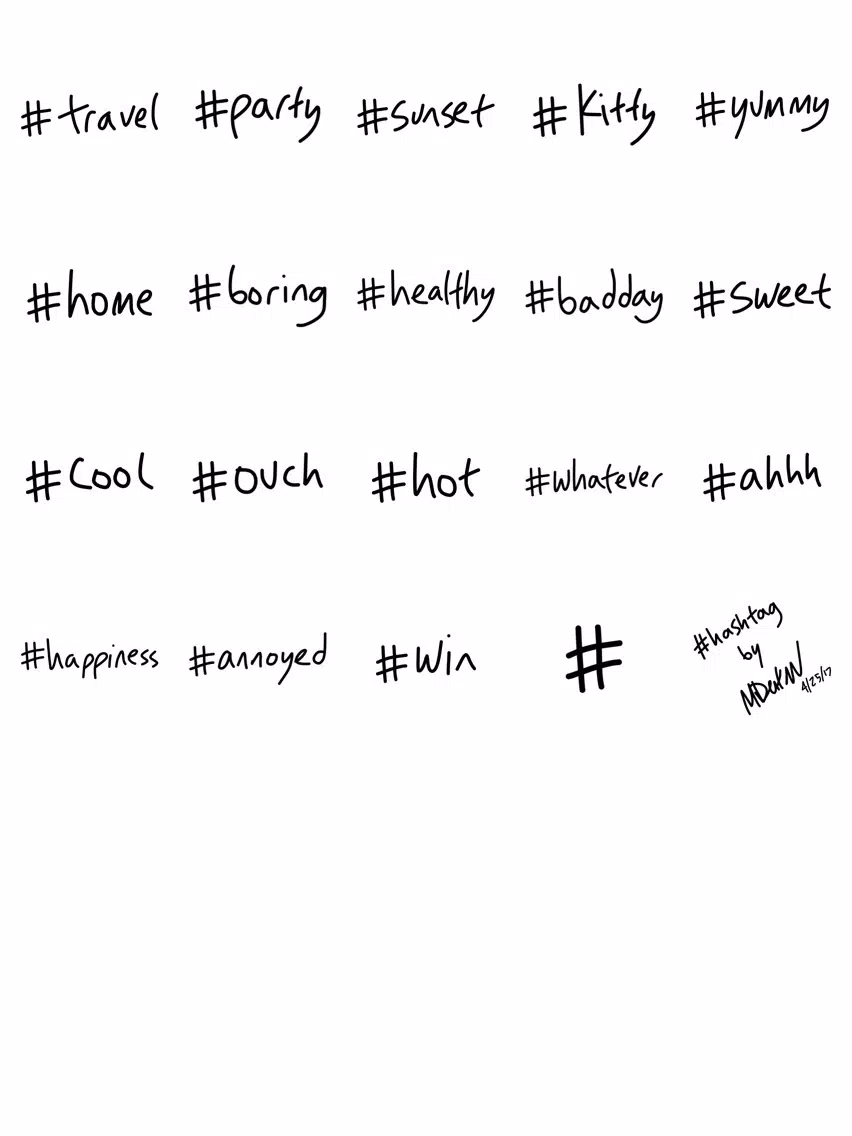 #travel #party #sunset #Kitty #yummy
#home #boring #healthy #badday #sweet
#Cool #ouch #hot #whatever #ahhh
#happiness #annoyed #win # #hashtag
by
4/25/17